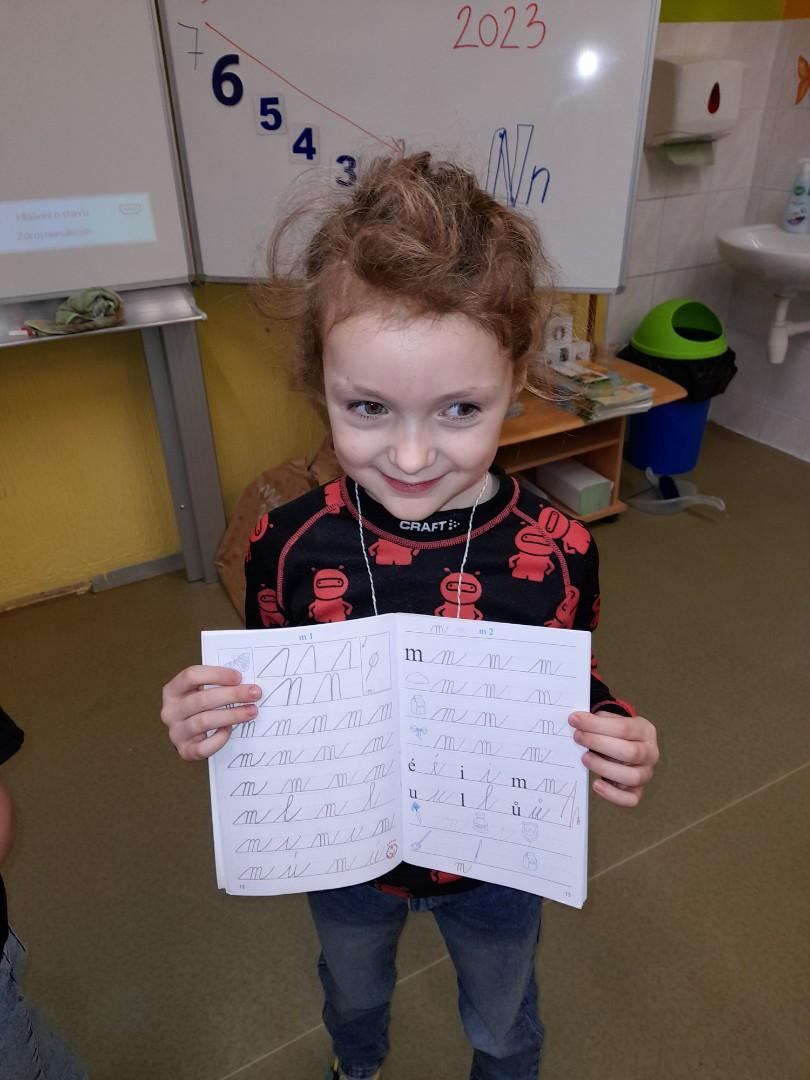 2023
7
6
5
4
3
Nn
Hlášení o stavu
Zdroj nenalezen
CRAFT
m 1
m m m m m
m m m m
m m m m
m l m l
m i m u m
m ú m ú
12
m m 2
m m m m
m m m
m m m
m m m
é é i i m m
u u l l ů ů
m
13